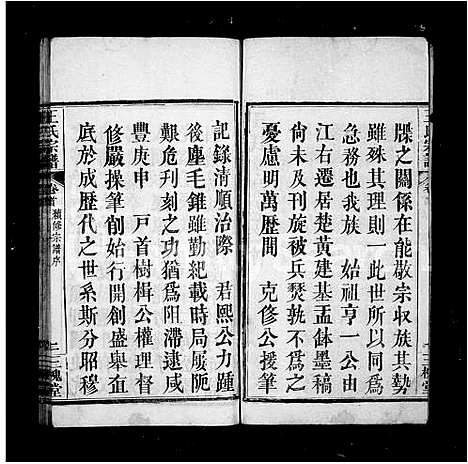 王氏宗譜
牒之關係在能敬宗収族其勢
雖殊其理則一此世所以同為
急務也我族 始祖亨一公由
江右遷居楚黃建基墨稿
尚未及刋旋被兵燹孰不為之
憂慮明萬歷間 克修公援筆
記錄清順治際 君熙公力踵
後塵毛錐雖勤紀載時局屢阨
艱危刋刻之功猶為阻滯逮咸
豐庚申 戸首樹楫公權理督
修嚴操筆創始行開創盛舉
底於成歷代之世系斯分昭穆
王氏宗譜 卷首 續修宗譜序 二 三槐堂